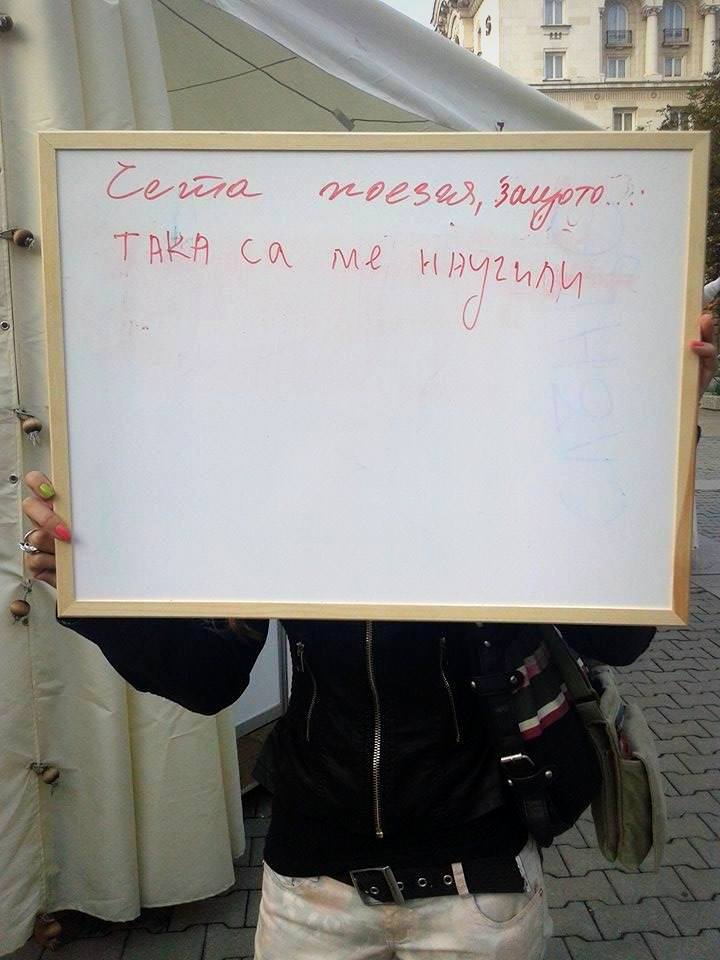 Чета поезия, защото...
ТАКА са ме научили